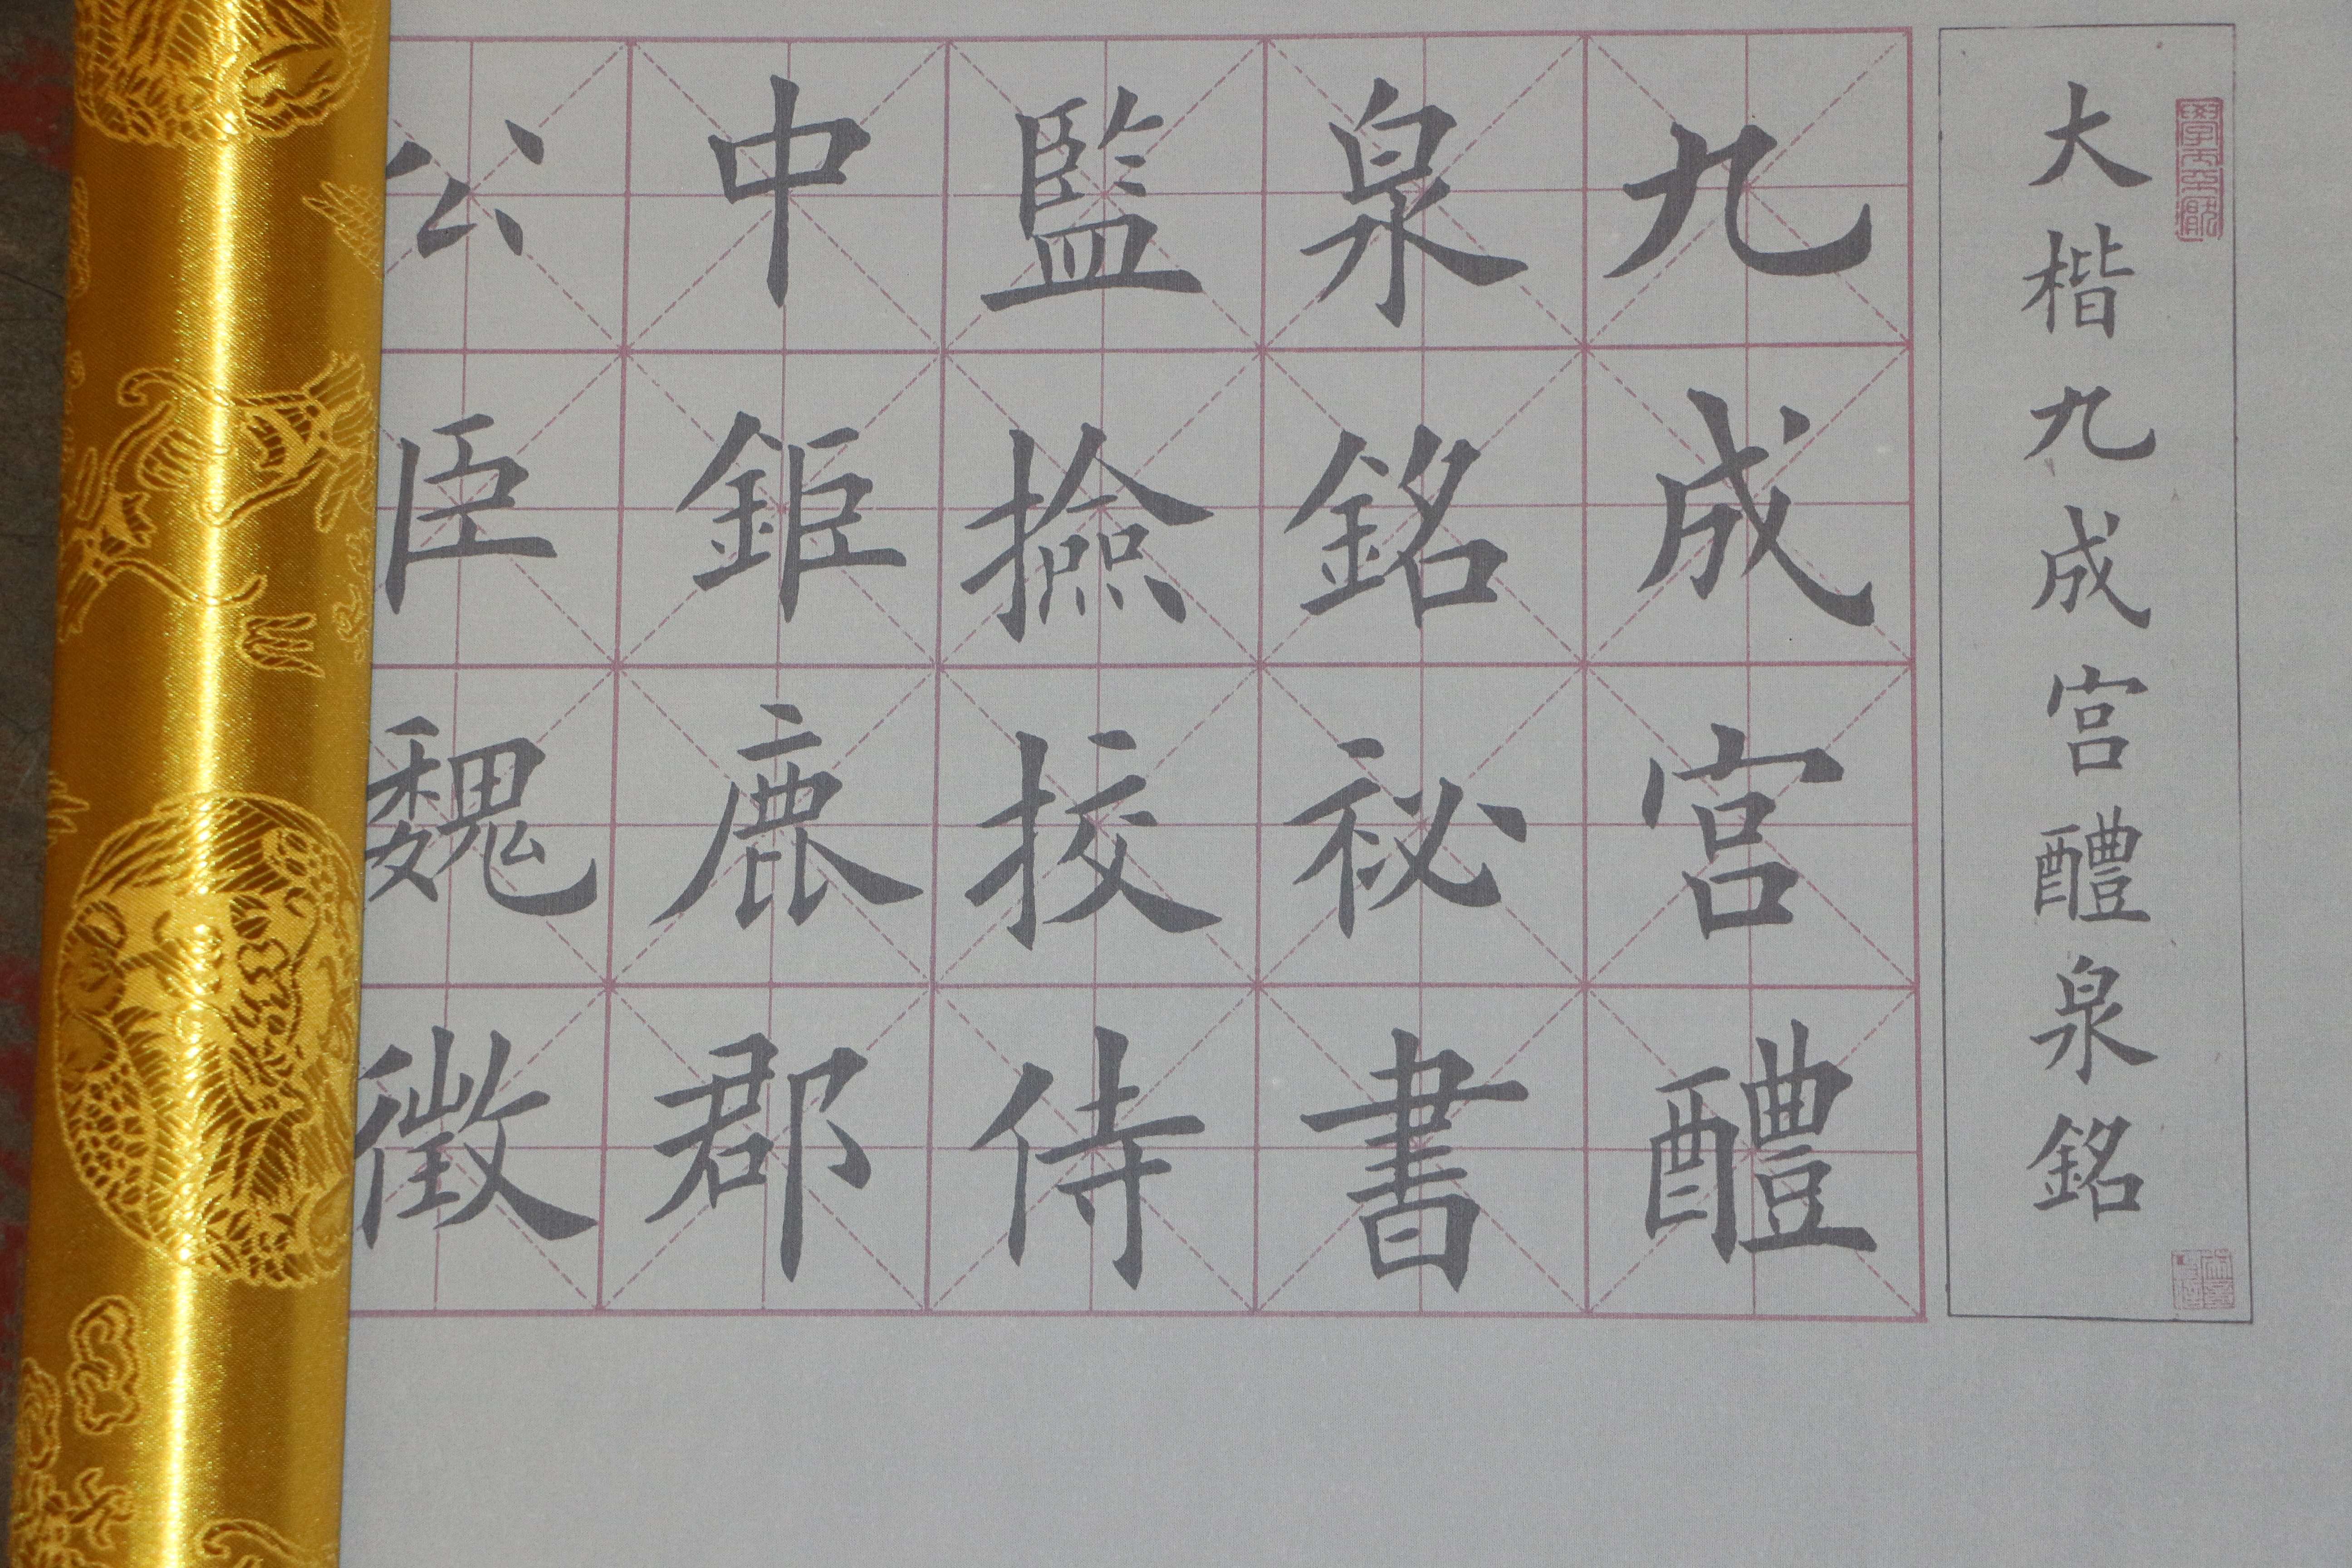 大楷九成宫醴泉銘
九成宫醴
泉銘祕書
監撿挍侍
中鉅鹿郡
公臣魏徵